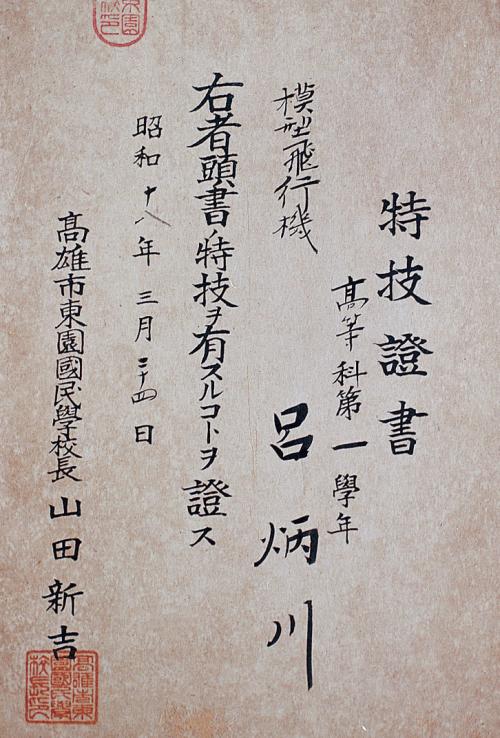 特技證書
高等科第一學年
呂炳川
模型飛行機
右者頭書ノ特技ヲ有スルコトヲ證ス
昭和十八年三月二十四日
高雄市東園國民學校長 山田新吉